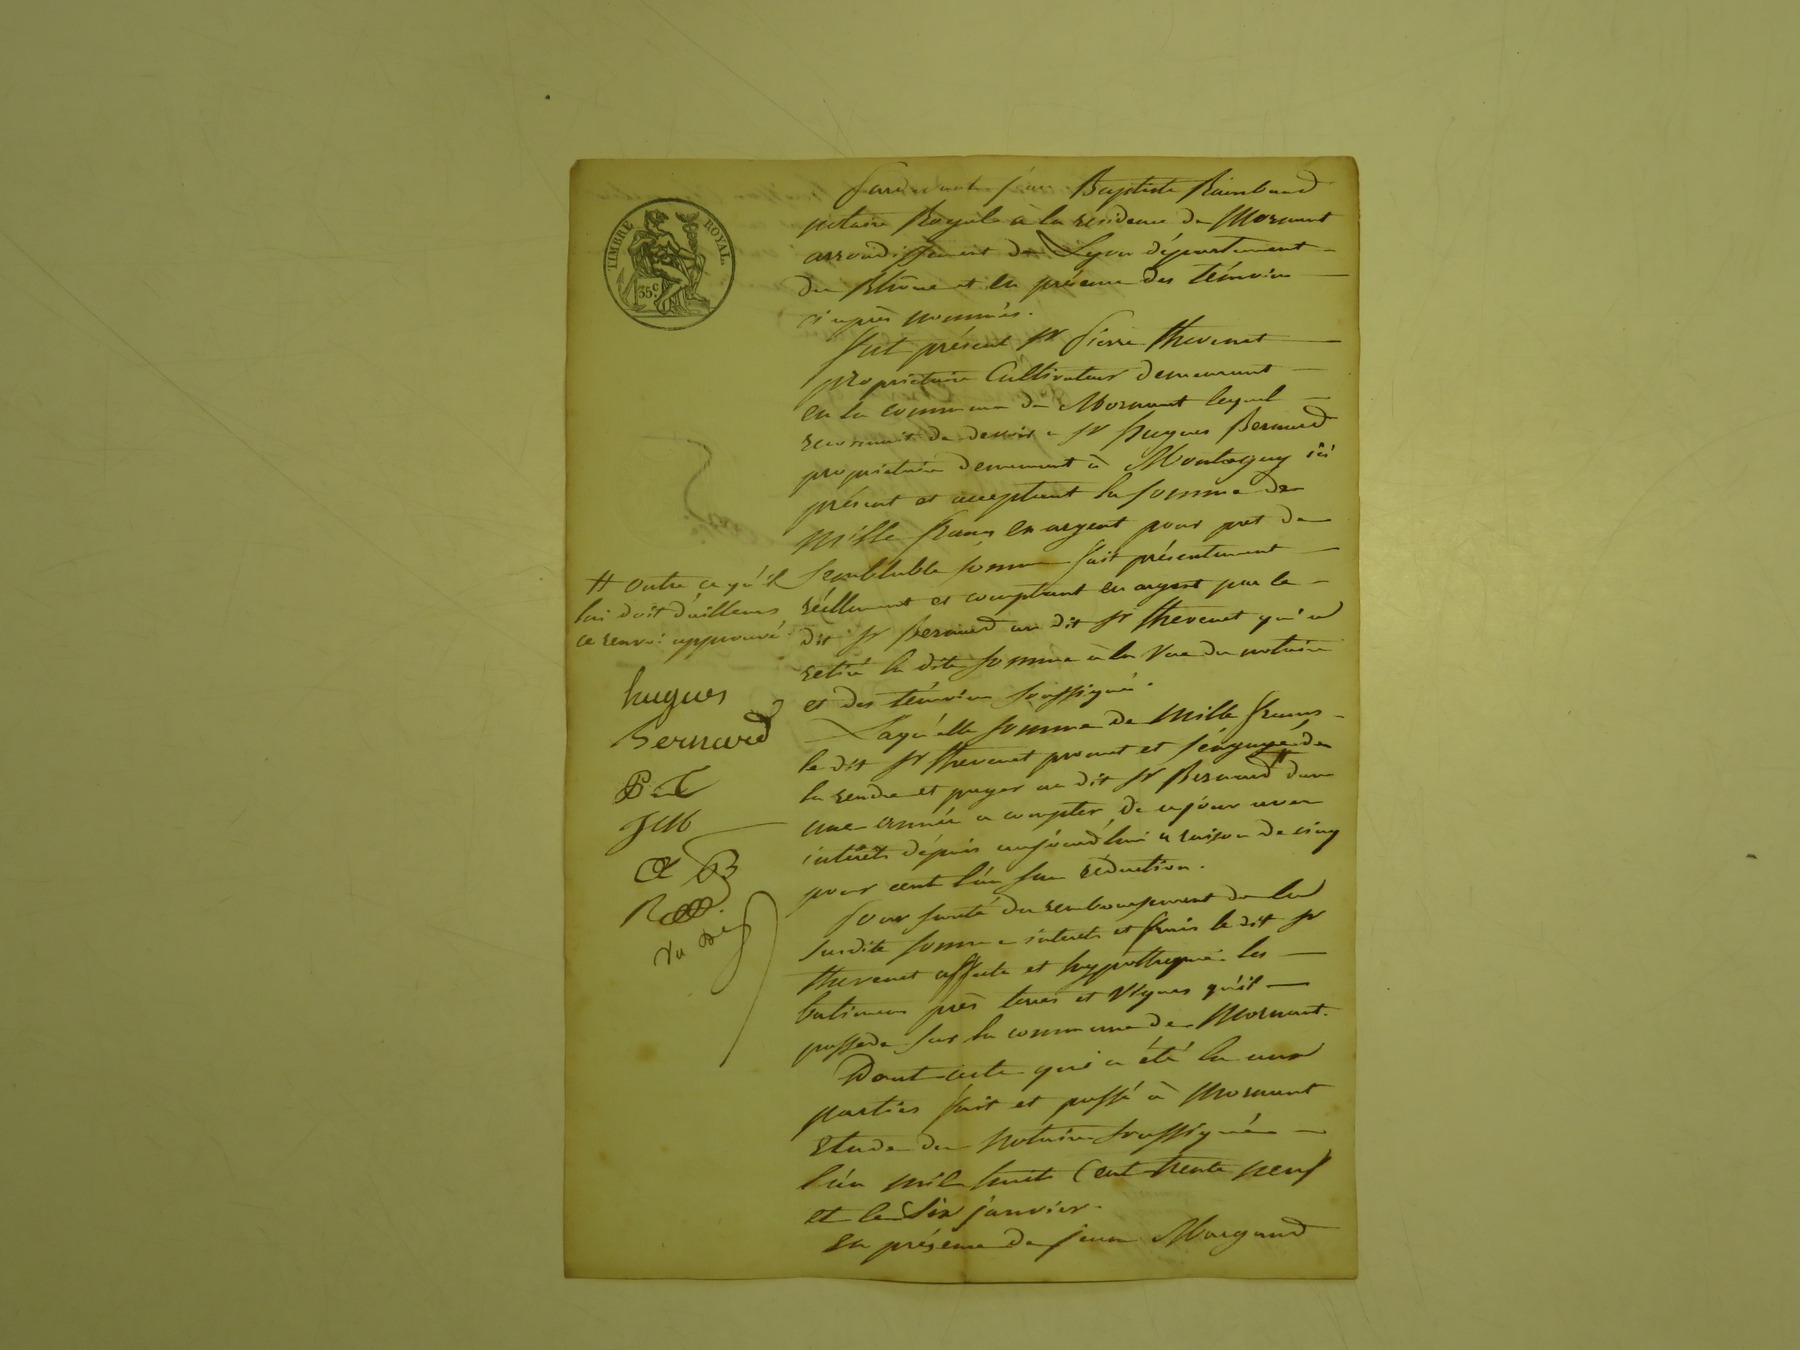 TIMBRE ROYAL.
35 c.
Pardevant Jean Baptiste Rainbaud
notaire Royale à la residence de Mornant
arrondissement de Lyon département
du Rhône et en présence des témoins
ci après nommés.
fut présent sr Pierre thevenet
propriétaire Cultivateur demeurant
en la commune de Mornant lequel
reconnait de devoir a sr hugues Bernard
propriétaire demeurant à Montagny ici
présent et acceptant la somme de
mille francs en argent pour pret de
semblable somme fait présentement
réellement et comptant en argent par le
dit sr Bernard au dit sr thevenet qui a
retiré la dite somme à la Vue du notaire
et des témoins soussigné.
Laquelle somme de mille francs
le dit sr thevenet promet et s'engage de
la rendre et payer au dit sr Bernard # dans
une année a compter de ce jour avec
intérêts dépuis aujourd'hui a raison de cinq
pour cent l'an sans réduction.
Pour sureté du remboursement de la
susdite somme interets et frais le dit sr
thevenet affecte et hypothequé les
batimens près terres et Vignes qu'il
possede sur la commune de Mornant.
Dont acte qui a été lu aux
parties fait et passé à Mornant
etude du notaire soussigné
l'an mil huit Cent trente neuf
et le Six janvier.
en présence de jean Margand
# outre ce qu'il
lui doit d'ailleurs
ce renvoi approuvé
hugues
Bernard